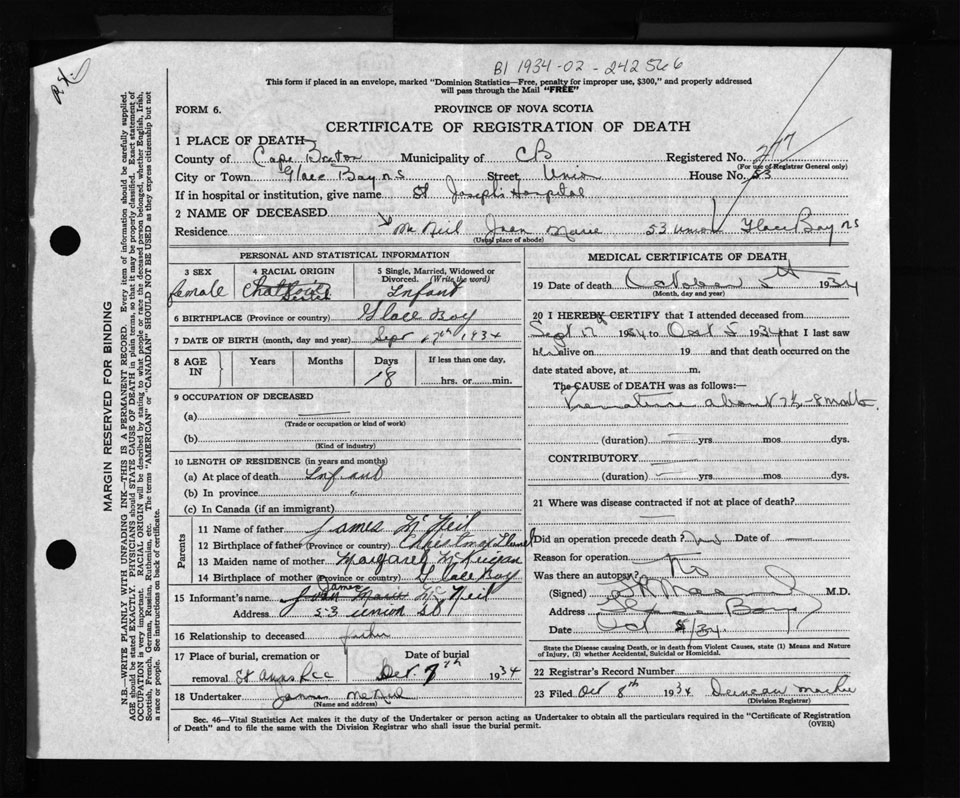 BI 1934-02-242566
This form if placed in an envelope, marked "Dominion Statistics—Free, penalty for improper use, $300," and properly addressed
will pass through the Mail "FREE"
FORM 6. PROVINCE OF NOVA SCOTIA
CERTIFICATE OF REGISTRATION OF DEATH
1 PLACE OF DEATH
County of Cape Breton Municipality of CB Registered No. 247
(For use of Registrar General only)
City or Town Glace Bay NS Street Union House No. 53
If in hospital or institution, give name St Josephs Hospital
2 NAME OF DECEASED
Residence Mc Neil Joan Marie 53 Union Glace Bay NS
(Usual place of abode)
PERSONAL AND STATISTICAL INFORMATION
3 SEX 4 RACIAL ORIGIN 5 Single, Married, Widowed or
Divorced. (Write the word)
female Infant
6 BIRTHPLACE (Province or country) Glace Bay
7 DATE OF BIRTH (month, day and year) Sept 17th 1934
8 AGE IN Years Months Days If less than one day,
18 hrs. or min.
9 OCCUPATION OF DECEASED
(a)
(Trade or occupation or kind of work)
(b)
(Kind of industry)
10 LENGTH OF RESIDENCE (in years and months)
(a) At place of death Infant
(b) In province "
(c) In Canada (if an immigrant)
Parents
11 Name of father James McNeil
12 Birthplace of father (Province or country) Christmas Island
13 Maiden name of mother Margaret
14 Birthplace of mother (Province or country) Glace Bay
15 Informant's name James McNeil
Address 53 Union St
16 Relationship to deceased father
17 Place of burial, cremation or Date of burial
removal St Anns RCC Oct 7th 1934
18 Undertaker James McNeil
(Name and address)
MEDICAL CERTIFICATE OF DEATH
19 Date of death October 5th 1934
(Month, day and year)
20 I HEREBY CERTIFY that I attended deceased from
Sept 17 1934 to Oct 5 1934 that I last saw
h alive on 19 and that death occurred on the
date stated above, at m.
The CAUSE of DEATH was as follows:—
Premature about 7½-8 months.
(duration) yrs. mos. dys.
CONTRIBUTORY
(duration) yrs. mos. dys.
21 Where was disease contracted if not at place of death?
Did an operation precede death? no Date of
Reason for operation
Was there an autopsy? No
(Signed) M.D.
Address Glace Bay
Date Oct 5/34.
State the Disease causing Death, or in death from Violent Causes, state (1) Means and Nature
of Injury, (2) whether Accidental, Suicidal or Homicidal.
22 Registrar's Record Number
23 Filed Oct 8th 1934 Duncan
(Division Registrar)
Sec. 46—Vital Statistics Act makes it the duty of the Undertaker or person acting as Undertaker to obtain all the particulars required in the "Certificate of Registration
of Death" and to file the same with the Division Registrar who shall issue the burial permit. (OVER)
MARGIN RESERVED FOR BINDING
N.B.—WRITE PLAINLY WITH UNFADING INK—THIS IS A PERMANENT RECORD. Every item of information should be carefully supplied.
AGE should be stated EXACTLY. PHYSICIANS should STATE CAUSE OF DEATH in plain terms, so that it may be properly classified. Exact statement of
OCCUPATION is very important. RACIAL ORIGIN will be described by stating to what people or race the deceased person belonged, whether English, Irish,
Scottish, French, German, Russian, Ruthenian, etc. The terms "AMERICAN" or "CANADIAN" SHOULD NOT BE USED as they express citizenship but not
a race or people. See instructions on back of certificate.